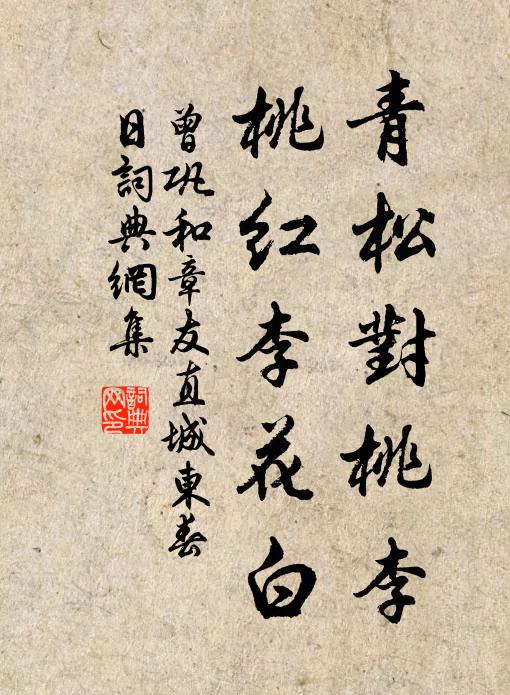 青松對桃李
桃紅李花白
曾巩和章友直城東春
日詞典網集
詞典
网印